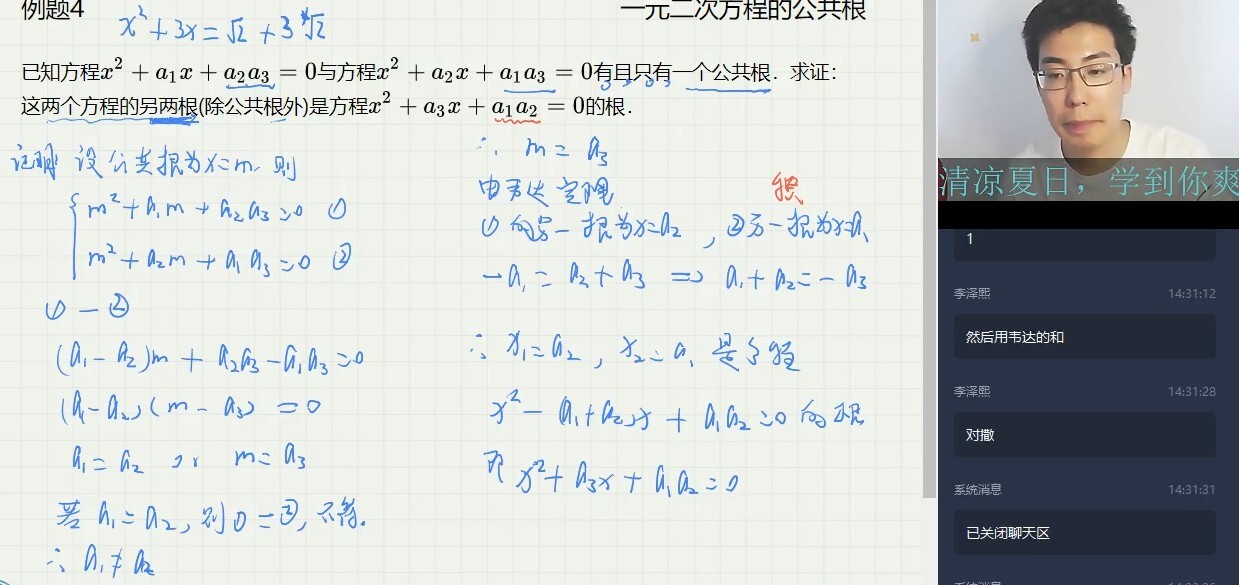 例题4
一元二次方程的公共根
x³+3x=√2+3∛2
已知方程x²+a₁x+a₂a₃=0与方程x²+a₂x+a₁a₃=0有且只有一个公共根．求证：
这两个方程的另两根(除公共根外)是方程x²+a₃x+a₁a₂=0的根．
证明 设公共根为x=m, 则
m²+a₁m+a₂a₃=0 ①
m²+a₂m+a₁a₃=0 ②
①-②
(a₁-a₂)m+a₂a₃-a₁a₃=0
(a₁-a₂)(m-a₃)=0
a₁=a₂ or m=a₃
若a₁=a₂, 则①=②, 不符.
∴ a₁≠a₂
∴ m=a₃
由韦达定理
积
①的另一根为x=a₂, ②另一根为x=a₁
-a₁=a₂+a₃ ⇒ a₁+a₂=-a₃
∴ x₁=a₂, x₂=a₁ 是方程
x²-(a₁+a₂)x+a₁a₂=0的根
即 x²+a₃x+a₁a₂=0
清凉夏日，学到你爽
1
李泽熙 14:31:12
然后用韦达的和
李泽熙 14:31:28
对撒
系统消息 14:31:31
已关闭聊天区